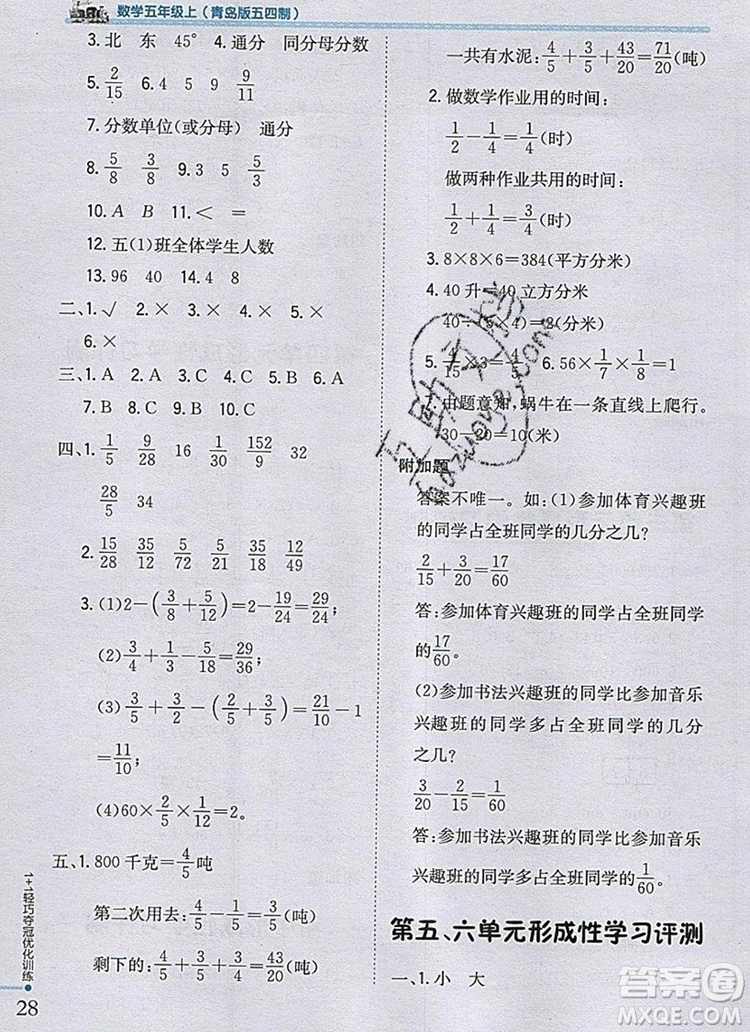 数学五年级上(青岛版五四制)
3.北 东 45° 4.通分 同分母分数
5. 2/15 6.4 5 9 9/11
7.分数单位(或分母) 通分
8. 5/8 3/8 9.3 5 5/9
10.A B 11.< =
12.五(1)班全体学生人数
13.96 40 14.4 8
二、1.√ 2.× 3.× 4.× 5.×
6.×
三、1.A 2.A 3.A 4.A 5.A 6.A
7.B 8.B 9.B 10.C
四、1. 1/5 9/28 16 152/9 32
28/5 34
2. 15/28 5/72 5/21 8/15
3.(1)2-(3/8+5/12)=29/24;
(2)3/4+1/3-5/8=29/36;
(3)3/5+3/2=2/5+3/5=21/10-1
=11/10;
(4)60×2/5×1/12=2。
五、1.800千克=4/5吨
第二次用去:
剩下的:
一共有水泥:4/5+3/5+43/20=71/20(吨)
2.做数学作业用的时间:
1/2-1/4=1/4(时)
做两种作业共用的时间:
1/2+1/4=3/4(时)
3.8×8×6=384(平方分米)
4.40升=40立方分米
40÷(5×4)=2(分米)
5. 4/15×3=4/5 6.56×1/7×1/8=1
7.由题意知,蜗牛在一条直线上爬行。
30-20=10(米)
附加题
答案不唯一。如:(1)参加体育兴趣班
的同学占全班同学的几分之几?
2/15+3/20=17/60
答:参加体育兴趣班的同学占全班同学
的17/60。
(2)参加书法兴趣班的同学比参加音乐
兴趣班的同学多占全班同学的几分
之几?
3/20-2/15=1/60
答:参加书法兴趣班的同学比参加音乐
兴趣班的同学多占全班同学的1/60。
第五、六单元形成性学习评测
一、1.小 大
1+1轻巧夺冠优化训练
28
答案圈
MXQE.COM